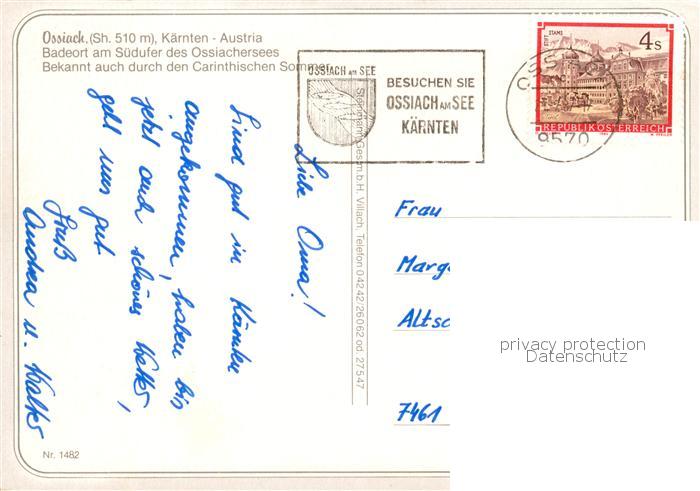 Ossiach, (Sh. 510 m), Kärnten - Austria
Badeort am Südufer des Ossiachersees
Bekannt auch durch den Carinthischen Sommer
OSSIACH AM SEE
BESUCHEN SIE
OSSIACH AM SEE
KÄRNTEN
OSSIACH
9570
STIFT STAMS
4 S
REPUBLIK ÖSTERREICH
Liebe Oma!
Sind gut in Kärnten
angekommen, haben bis
jetzt auch schönes Wetter,
geht uns gut
Gruß
Andrea u. Walter
Gesm.b.H. Villach, Telefon 0 42 42/26 0 62 od. 27 5 47
Frau
Marg
Altsc
7461
privacy protection
Datenschutz
Nr. 1482